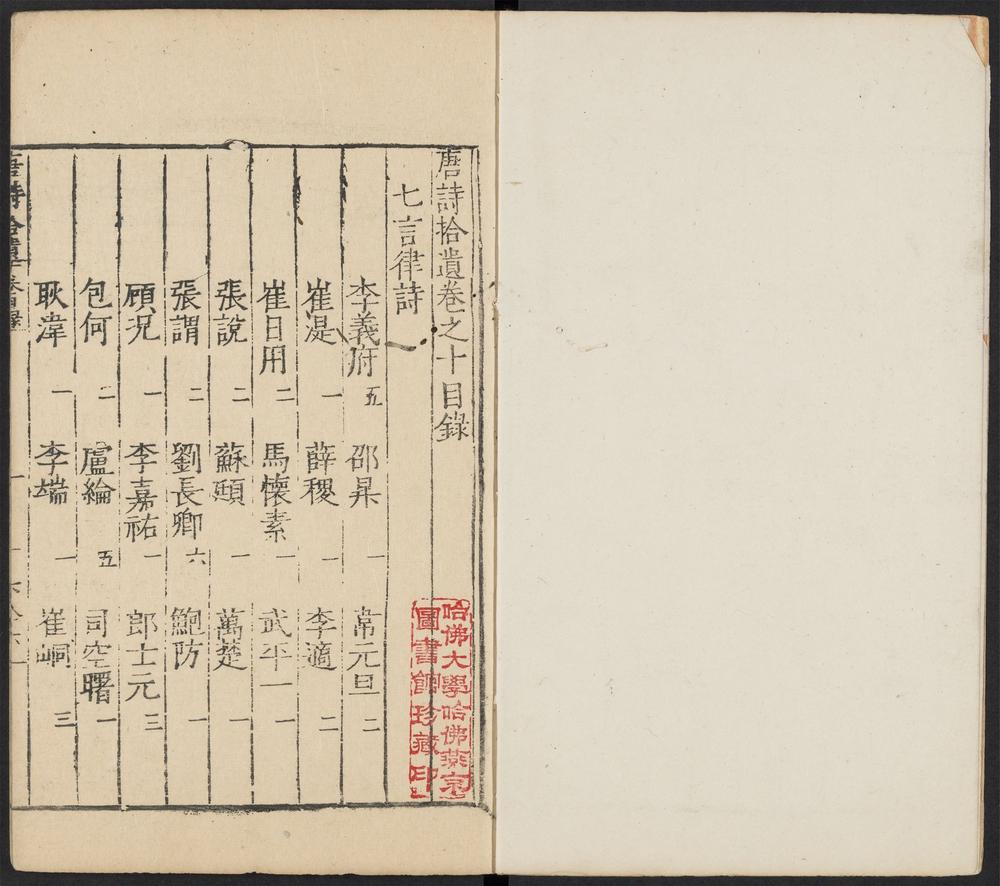 唐詩拾遺卷之十目錄
七言律詩
李義府 五 邵昇 一 韋元旦 二
崔湜 一 薛稷 一 李適 二
崔日用 二 馬懷素 一 武平一 一
張說 二 蘇頲 一 萬楚 一
張謂 二 劉長卿 六 鮑防 一
顧況 一 李嘉祐 一 郎士元 三
包何 二 盧綸 五 司空曙 一
耿湋 一 李端 一 崔峒 三
唐詩拾遺
哈佛大學哈佛燕京
圖書館珍藏印